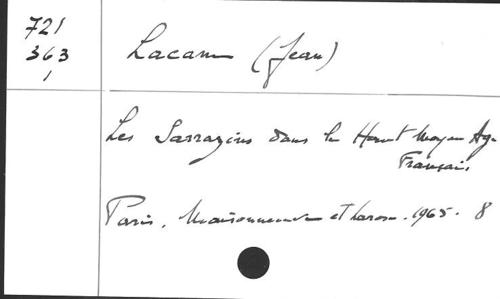 721
363
1
Lacam (Jean)
Les Sarrazins dans le Haut Moyen Age
Français
Paris, Maisonneuve et Larose. 1965. 8